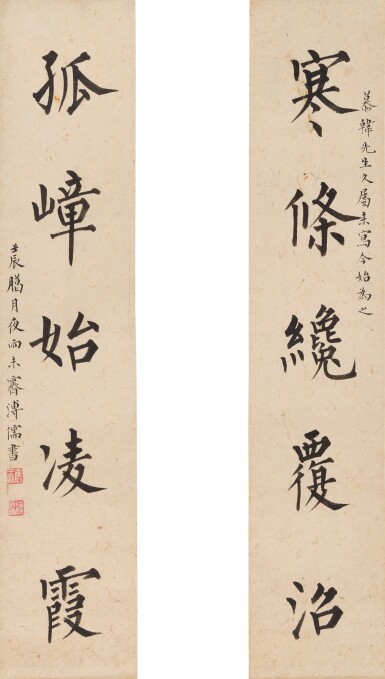 寒條纔覆沼
慕韓先生久屬未寫今始為之
孤嶂始凌霞
壬辰臘月夜雨未霽溥儒書